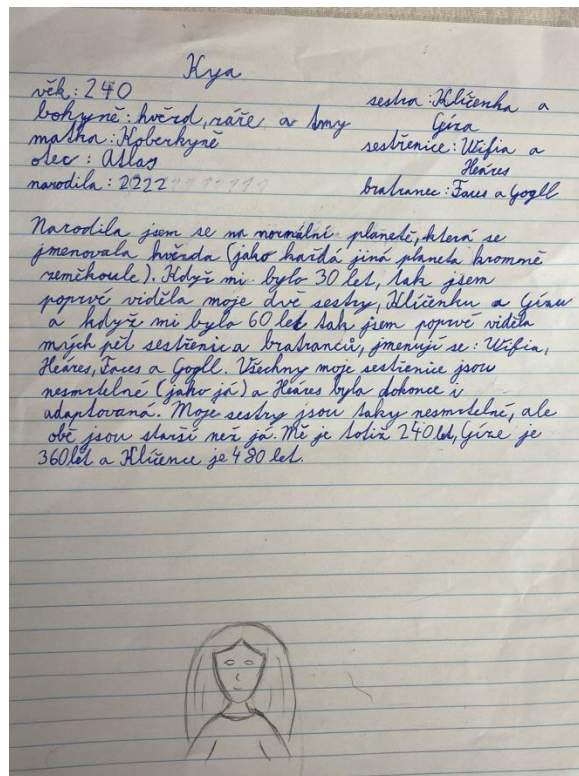 Kya
věk: 240
bohyně: hvězd, záře a tmy
matka: Koberkyně
otec: Atlas
narodila: 2222
sestra: Klíčenka a
Gíza
sestřenice: Wifia a
Heáres
bratranec: Faces a Gogll
Narodila jsem se na normální planetě, která se
jmenovala hvězda (jako každá jiná planeta kromně
zeměkoule). Když mi bylo 30 let, tak jsem
poprvé viděla moje dvě sestry, Klíčenku a Gízu
a když mi bylo 60 let tak jsem poprvé viděla
mých pět sestřenic a bratranců, jmenují se: Wifia,
Heáres, Faces a Gogll. Všechny moje sestřenice jsou
nesmrtelné (jako já) a Heáres byla dokonce i
adaptovaná. Moje sestry jsou taky nesmrtelné, ale
obě jsou starší než já. Mě je totiž 240 let, Gíze je
360 let a Klíčence je 480 let.